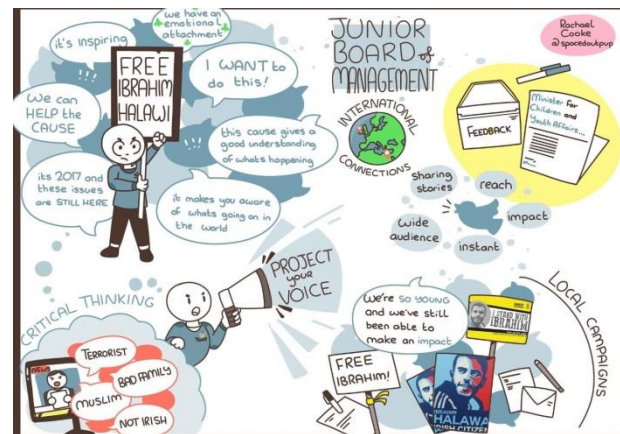 we have an
emotional
attachment
it's inspiring
FREE
IBRAHIM
HALAWI
I WANT to
do this!
We can
HELP the
CAUSE
!!!
this cause gives a
good understanding
of whats happening
its 2017 and
these issues
are STILL HERE
it makes you aware
of whats going on in
the world
JUNIOR
BOARD of
MANAGEMENT
Rachael
Cooke
@spacedoutpup
INTERNATIONAL
CONNECTIONS
FEEDBACK
Minister for
Children and
Youth Affairs...
sharing
stories
reach
wide
audience
impact
instant
PROJECT
your
VOICE
CRITICAL THINKING
NEWS
TERRORIST
BAD FAMILY
MUSLIM
NOT IRISH
We're SO YOUNG
and we've still
been able to
make an impact
I STAND WITH
IBRAHIM
FREE
IBRAHIM!
IBRAHIM
HALAWA
IRISH CITIZEN
LOCAL CAMPAIGNS